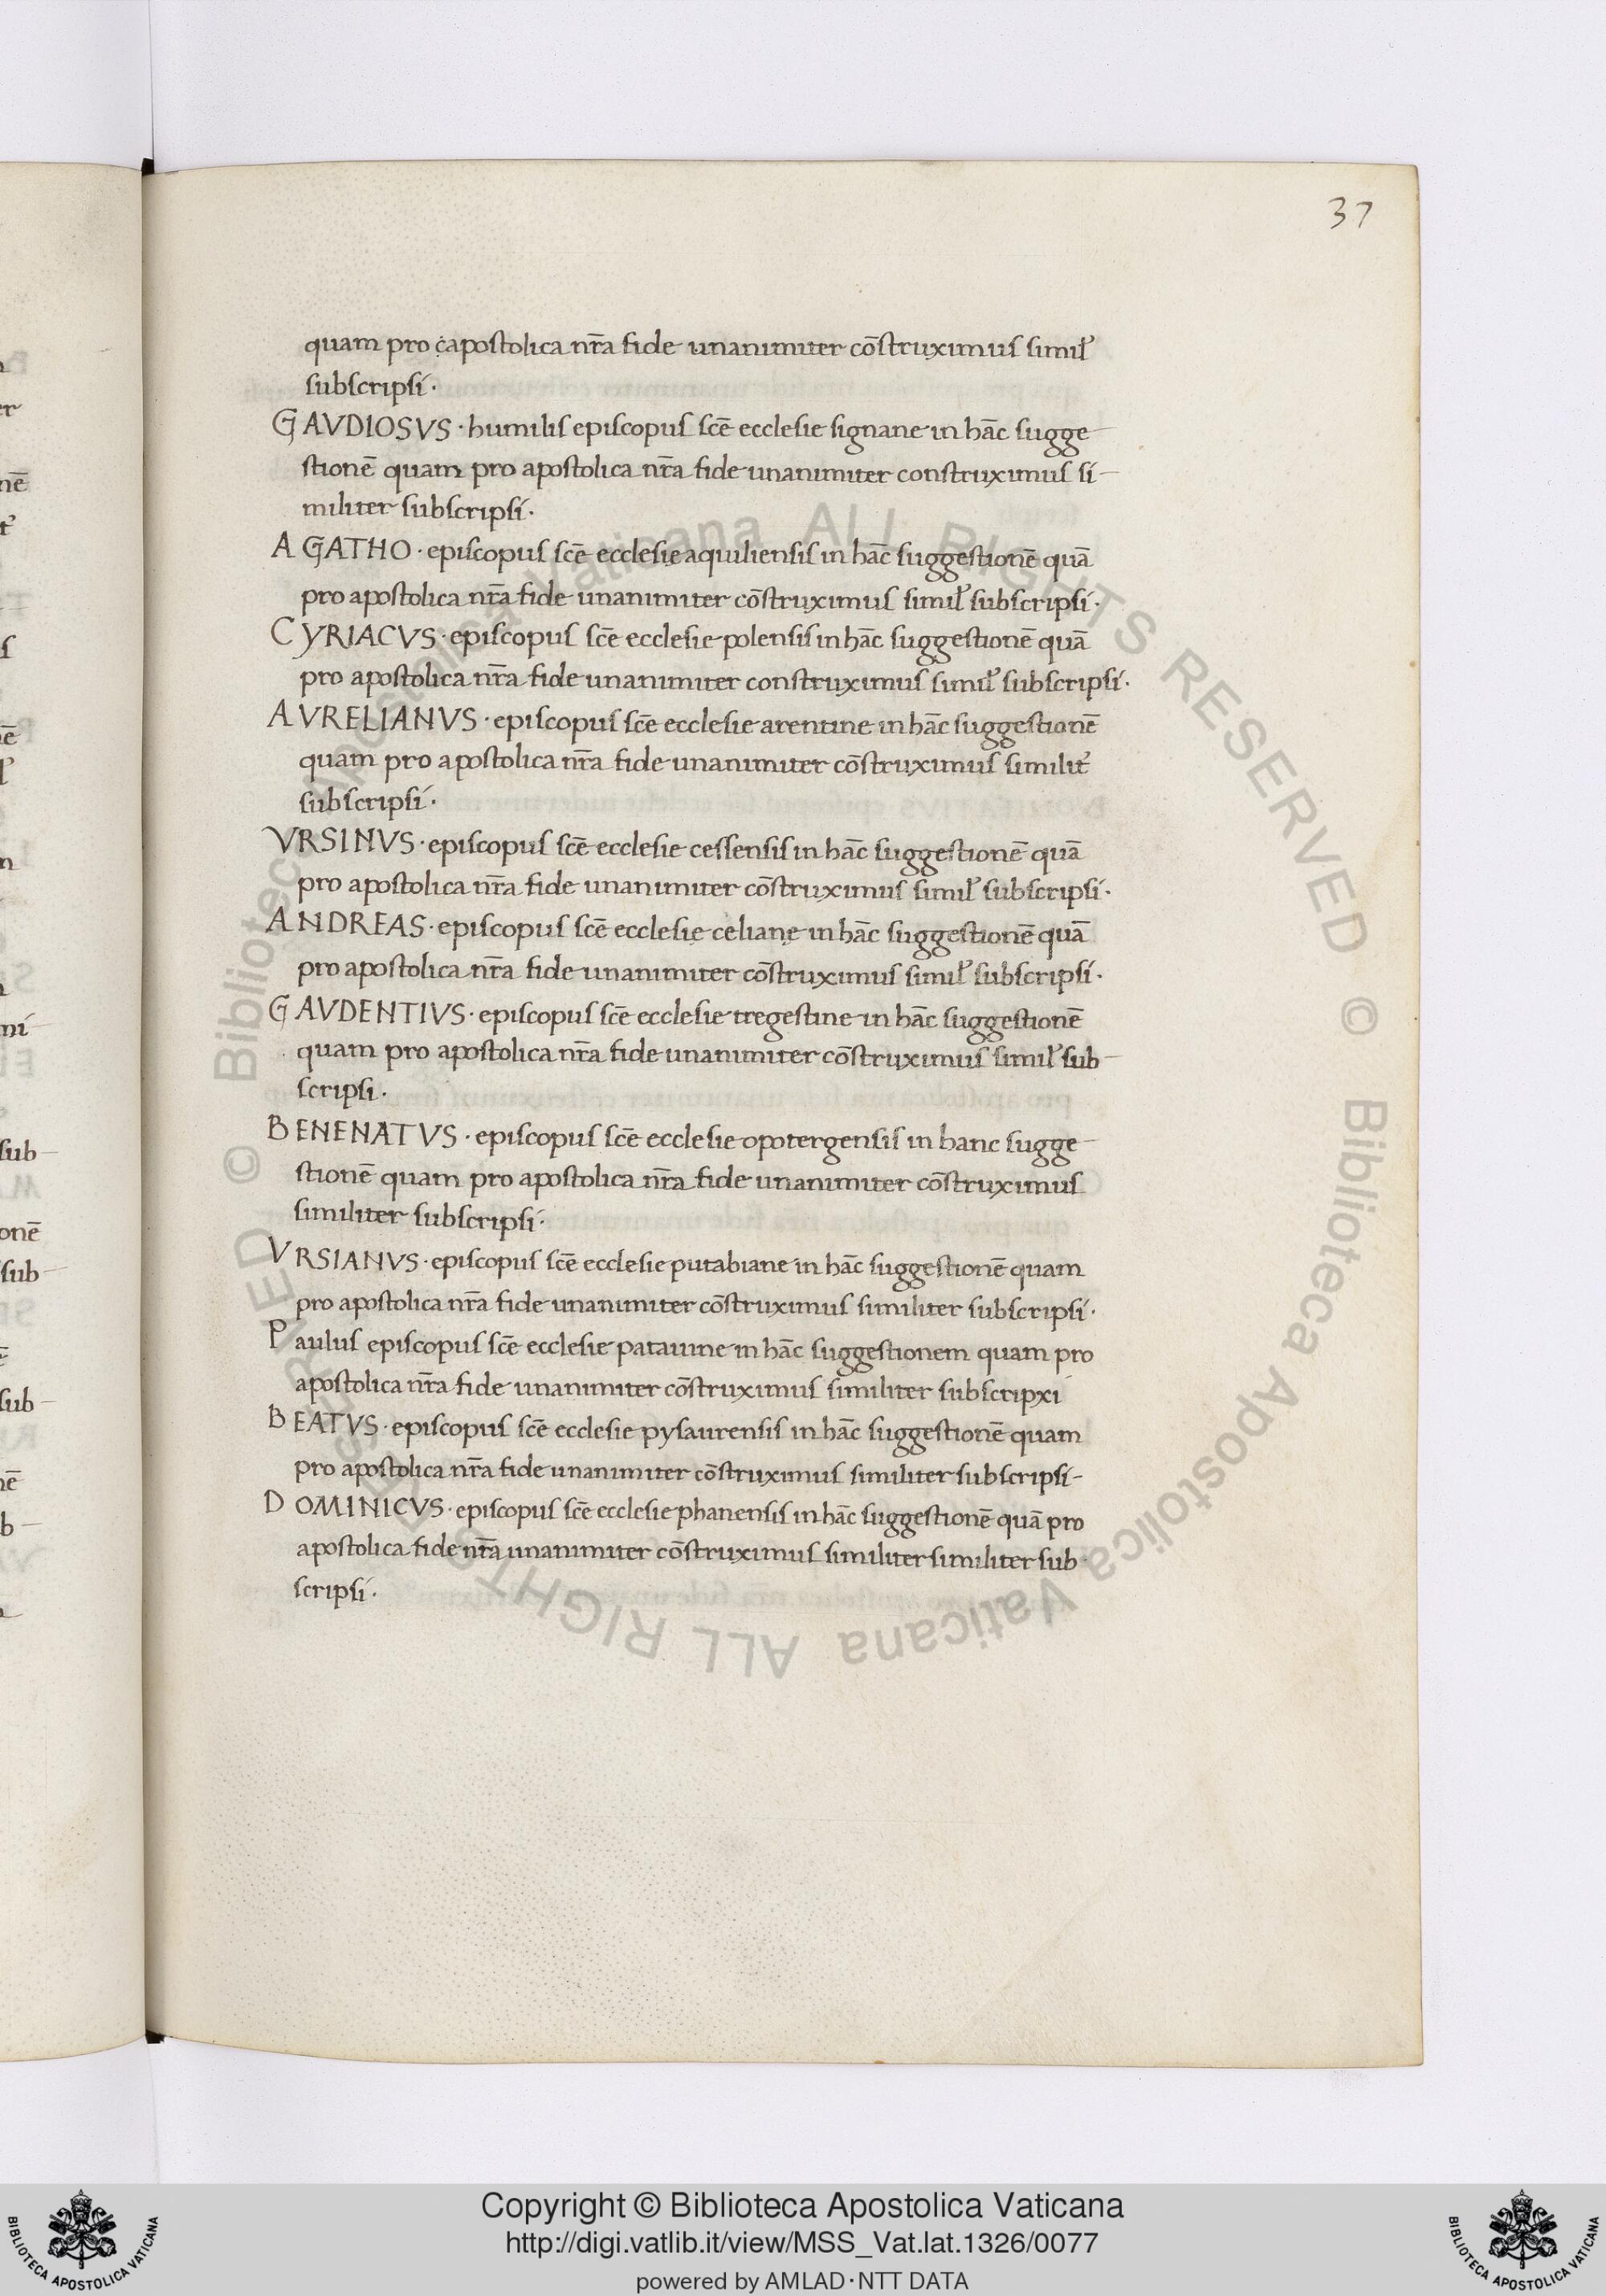 37
quam pro c̣apostolica nr̄a fide unanimiter cōstruximus simil̉
subscripsi.
GAVDIOSVS · humilis episcopus scē ecclesie signane in hāc sugge
stionē quam pro apostolica nr̄a fide unanimiter construximus si
militer subscripsi.
AGATHO · episcopus scē ecclesię aquiliensis in hāc suggestionē quā
pro apostolica nr̄a fide unanimiter cōstruximus simil̉ subscripsi.
CYRIACVS · episcopus scē ecclesie polensis in hāc suggestionē quā
pro apostolica nr̄a fide unanimiter construximus simil̉ subscripsi.
AVRELIANVS · episcopus scē ecclesie arentine in hāc suggestionē
quam pro apostolica nr̄a fide unanimiter cōstruximus similit̉
subscripsi.
VRSINVS · episcopus scē ecclesie cessensis in hāc suggestionē quā
pro apostolica nr̄a fide unanimiter cōstruximus simil̉ subscripsi.
ANDREAS · episcopus scē ecclesię celianę in hāc suggestionē quā
pro apostolica nr̄a fide unanimiter cōstruximus simil̉ subscripsi.
GAVDENTIVS · episcopus scē ecclesie tregestine in hāc suggestionē
quam pro apostolica nr̄a fide unanimiter cōstruximus simil̉ sub
scripsi.
BENENATVS · episcopus scē ecclesie opotergensis in hanc sugge
stionē quam pro apostolica nr̄a fide unanimiter cōstruximus
similiter subscripsi.
VRSIANVS · episcopus scē ecclesie putabiane in hāc suggestionē quam
pro apostolica nr̄a fide unanimiter cōstruximus similiter subscripsi.
Paulus episcopus scē ecclesie patauine in hāc suggestionem quam pro
apostolica nr̄a fide unanimiter cōstruximus similiter subscripxi
BEATVS · episcopus scē ecclesie pysaurensis in hāc suggestionē quam
pro apostolica nr̄a fide unanimiter cōstruximus similiter subscripsi-
DOMINICVS · episcopus scē ecclesie phanensis in hāc suggestionē quā pro
apostolica fide nr̄a unanimiter cōstruximus similiter similiter sub
scripsi.
© Biblioteca Apostolica Vaticana ALL RIGHTS RESERVED © Biblioteca Apostolica Vaticana ALL RIGHTS RESERVED
Copyright © Biblioteca Apostolica Vaticana
http://digi.vatlib.it/view/MSS_Vat.lat.1326/0077
powered by AMLAD·NTT DATA
BIBLIOTECA APOSTOLICA VATICANA
BIBLIOTECA APOSTOLICA VATICANA